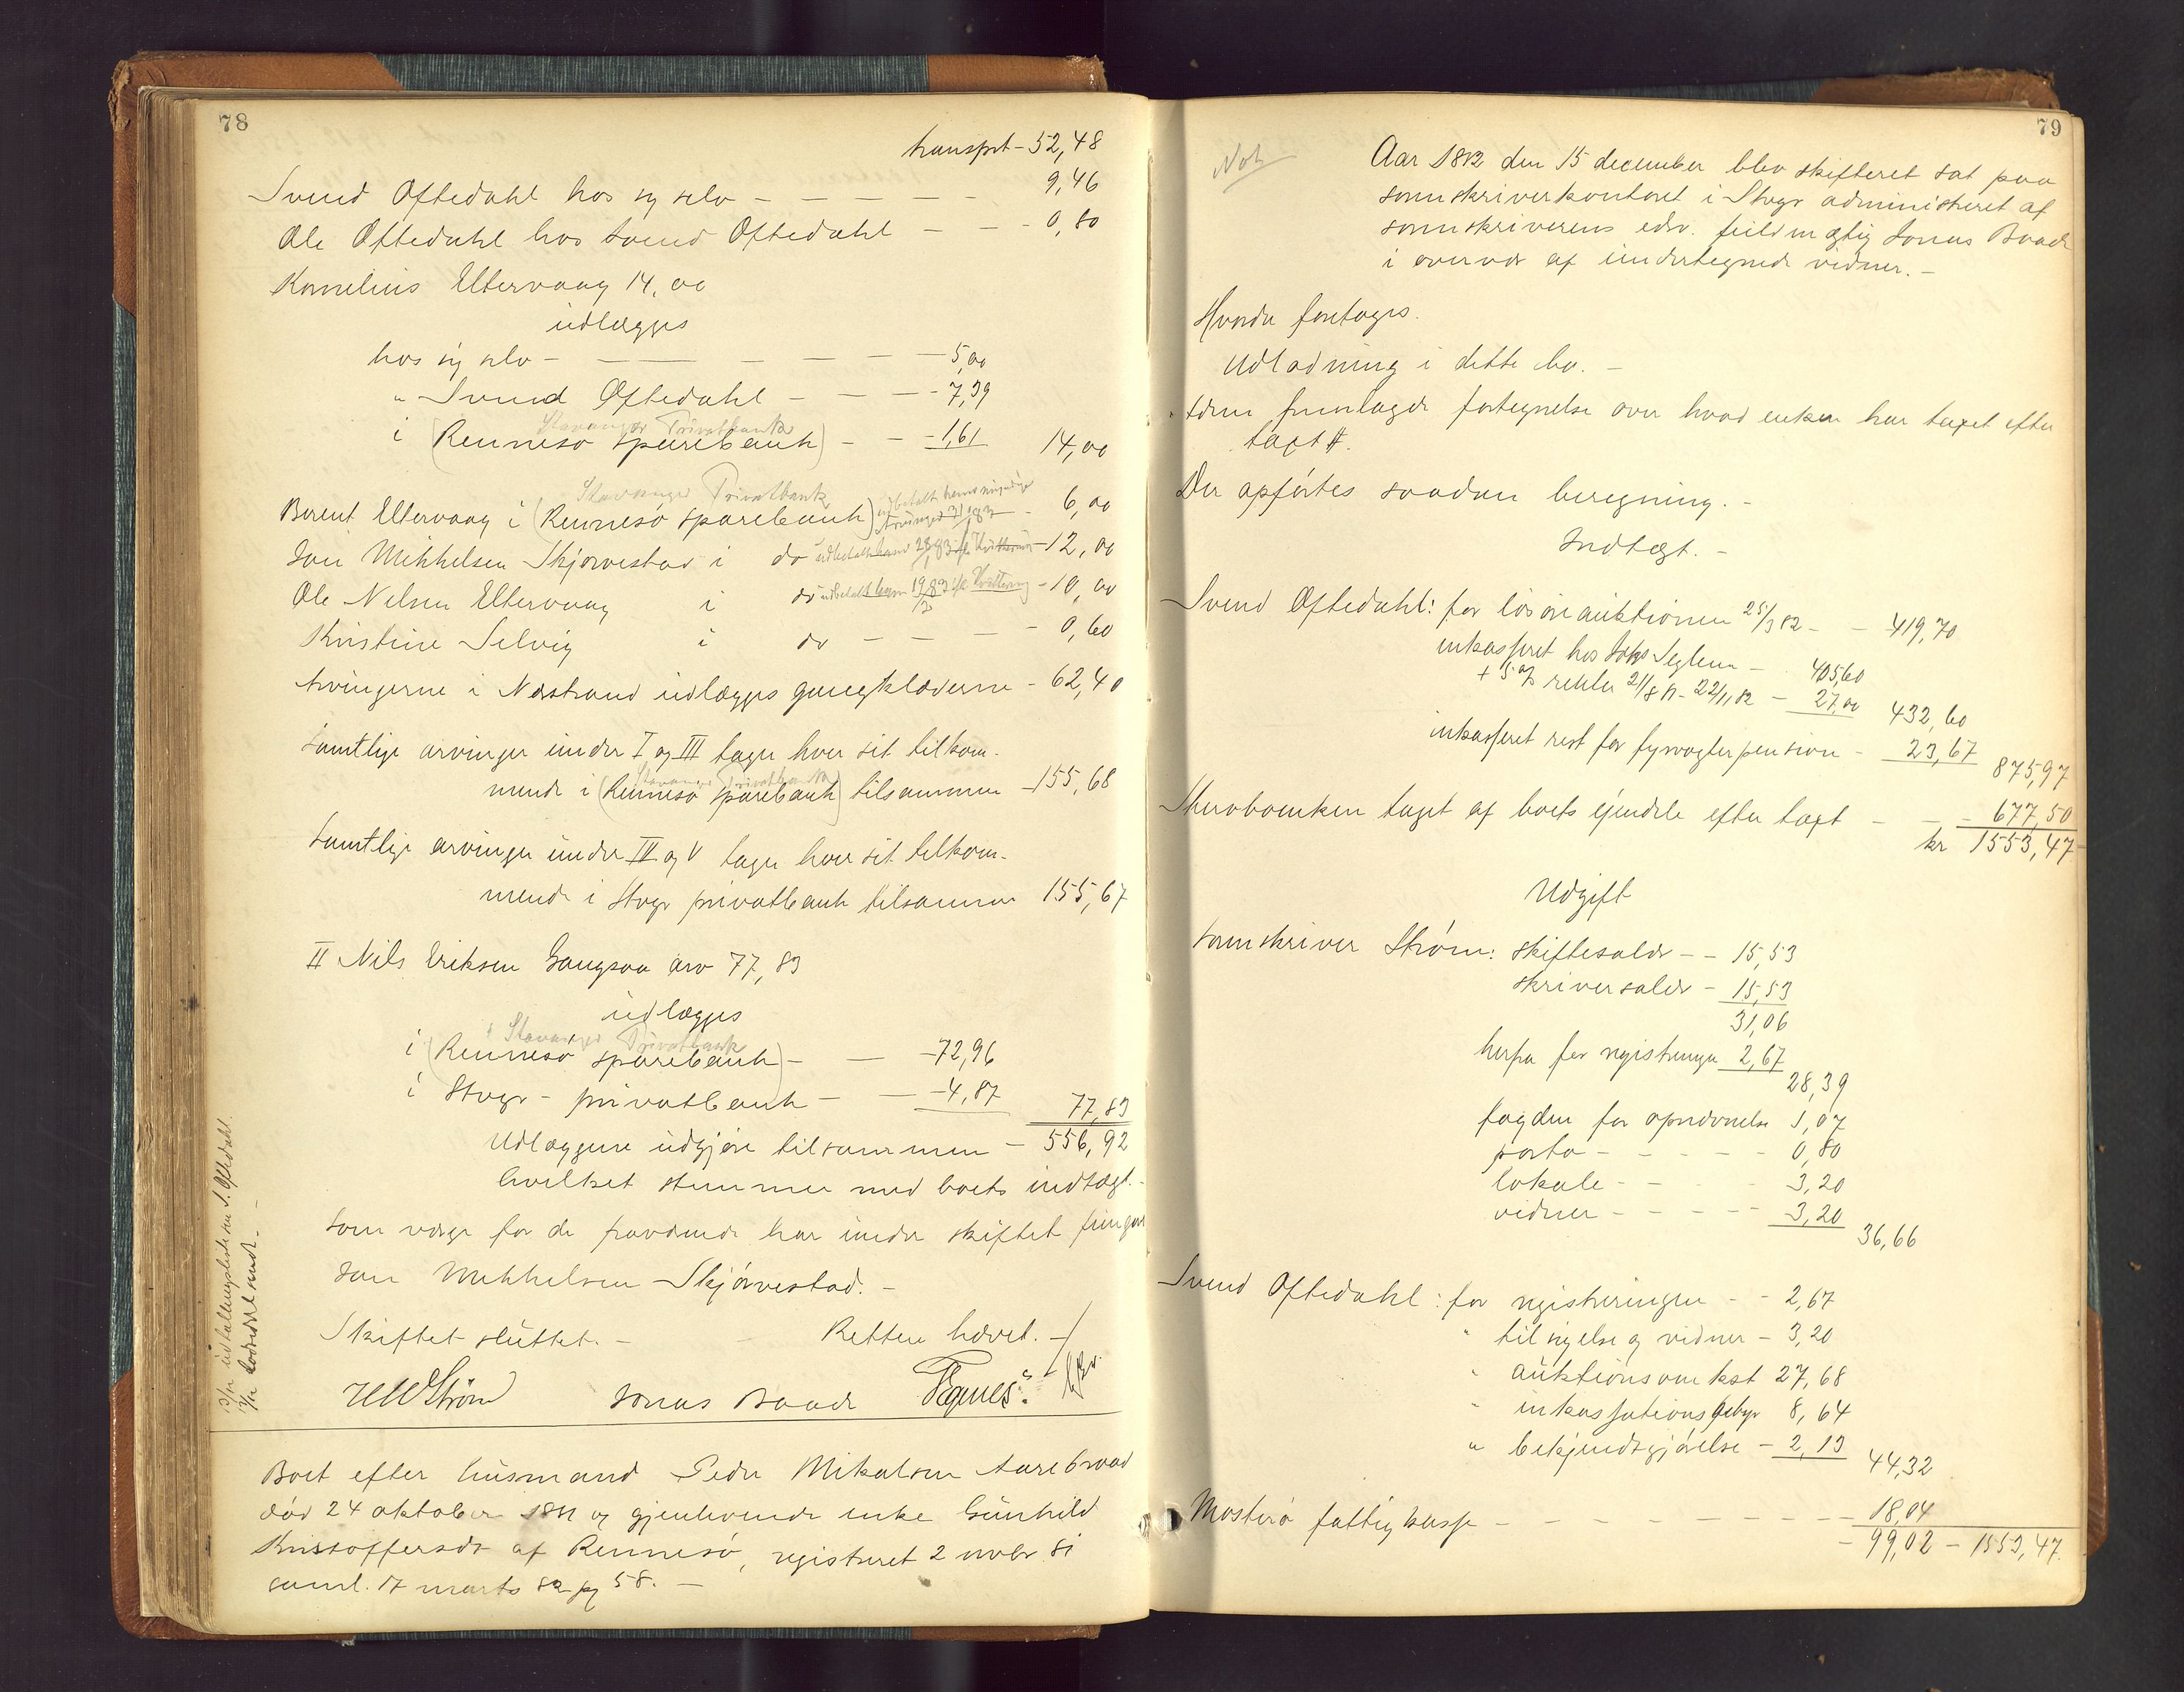 78
transprt - 52,48
Svend Oftedahl hos sig selv - - - - - 9,46
Ole Oftedahl hos Svend Oftedahl - - - 0,80
Kornelius Eltervaag 14,00
udlægges
hos sig selv - - - - - - 5,00
" Svend Oftedahl - - - - 7,39
Stavanger Privatbank
i (Rennesø sparebank) - - - 1,61 14,00
Stavanger Privatbank
Berent Eltervaag i (Rennesø sparebank) - 6,00
Jon Mikkelsen Skjørvestad i do udbetalt ham 12,00
Ole Nelsen Eltervaag i do udbetalt ham Kvittering - 10,00
Kristine Selvig i do - - - - 0,60
Arvingerne i Nerstrand udlægges gangklæderne - 62,40
Samtlige arvinger under I og III tager hver sit tilkom-
Stavanger Privatbank
mende i (Rennesø sparebank) tilsammen - 155,68
Samtlige arvinger under IV og V tager hver sit tilkom-
mende i Stvgr privatbank tilsammen 155,67
II Nils Eriksen Gangsaa arv 77,83
udlægges
i Stavanger Privatbank
i (Rennesø sparebank) - - 72,96
i Stvgr - privatbank - - 4,87 77,83
Udlæggene udgjøre tilsammen - 556,92
hvilket stemmer med boets indtægt. -
Som værge for de fraværende har under skiftet fungeret
Jon Mikkelsen Skjørvestad. -
Skiftet sluttet. - Retten hævet. -
Strøm Jonas Baade
udbetalingsliste S. Oftedahl.
Boet efter husmand Peder Mikalsen Aarebrod
død 24 oktober 1881 og gjenlevende enke Gunhild
Kristoffersdr af Rennesø, registreret 2 novbr 81
saml. 17 marts 82 pg 58. -
79
Not
Aar 1882 den 15 december blev skifteret sat paa
sorenskriverkontoret i Stvgr administreret af
sorenskriverens edsv. fuldmægtig Jonas Baade
i overvær af undertegnede vidner. -
Hvorda foretoges.
Udlodning i dette bo. -
fremlagde fortegnelse over hvad enken har taget efter
taxt #.
Der opførtes saadan beregning. -
Indtægt. -
Svend Oftedahl: for løsøreauktionen 25/3 82 - - 419,70
inkasseret hos Seglem - 405,60
+ 5 % renter 21/8 81 - 22/11 82 - 27,00 432,60
inkasseret rest for fyrvogterpension - 23,67 875,97
Skrevboenken taget af boets ejendele efter taxt - - - 677,50
kr 1553,47
Udgift
Sorenskriver Strøm: skiftesalær - - 15,53
skriversalær - 15,53
31,06
herfra for registreringen 2,67
28,39
fogden for opnævnelse 1,07
porto - - - - - 0,80
lokale - - - - 3,20
vidner - - - - - 3,20 36,66
Svend Oftedahl: for registreringen - - 2,67
" tilsigelse og vidner - 3,20
" auktionsomkost 27,68
" inkassationsgebyr 8,64
" bekjendtgjørelse - 2,13 44,32
Mosterø fattigkasse - - - - - - - - - - 18,04
- 99,02 - 1553,47.